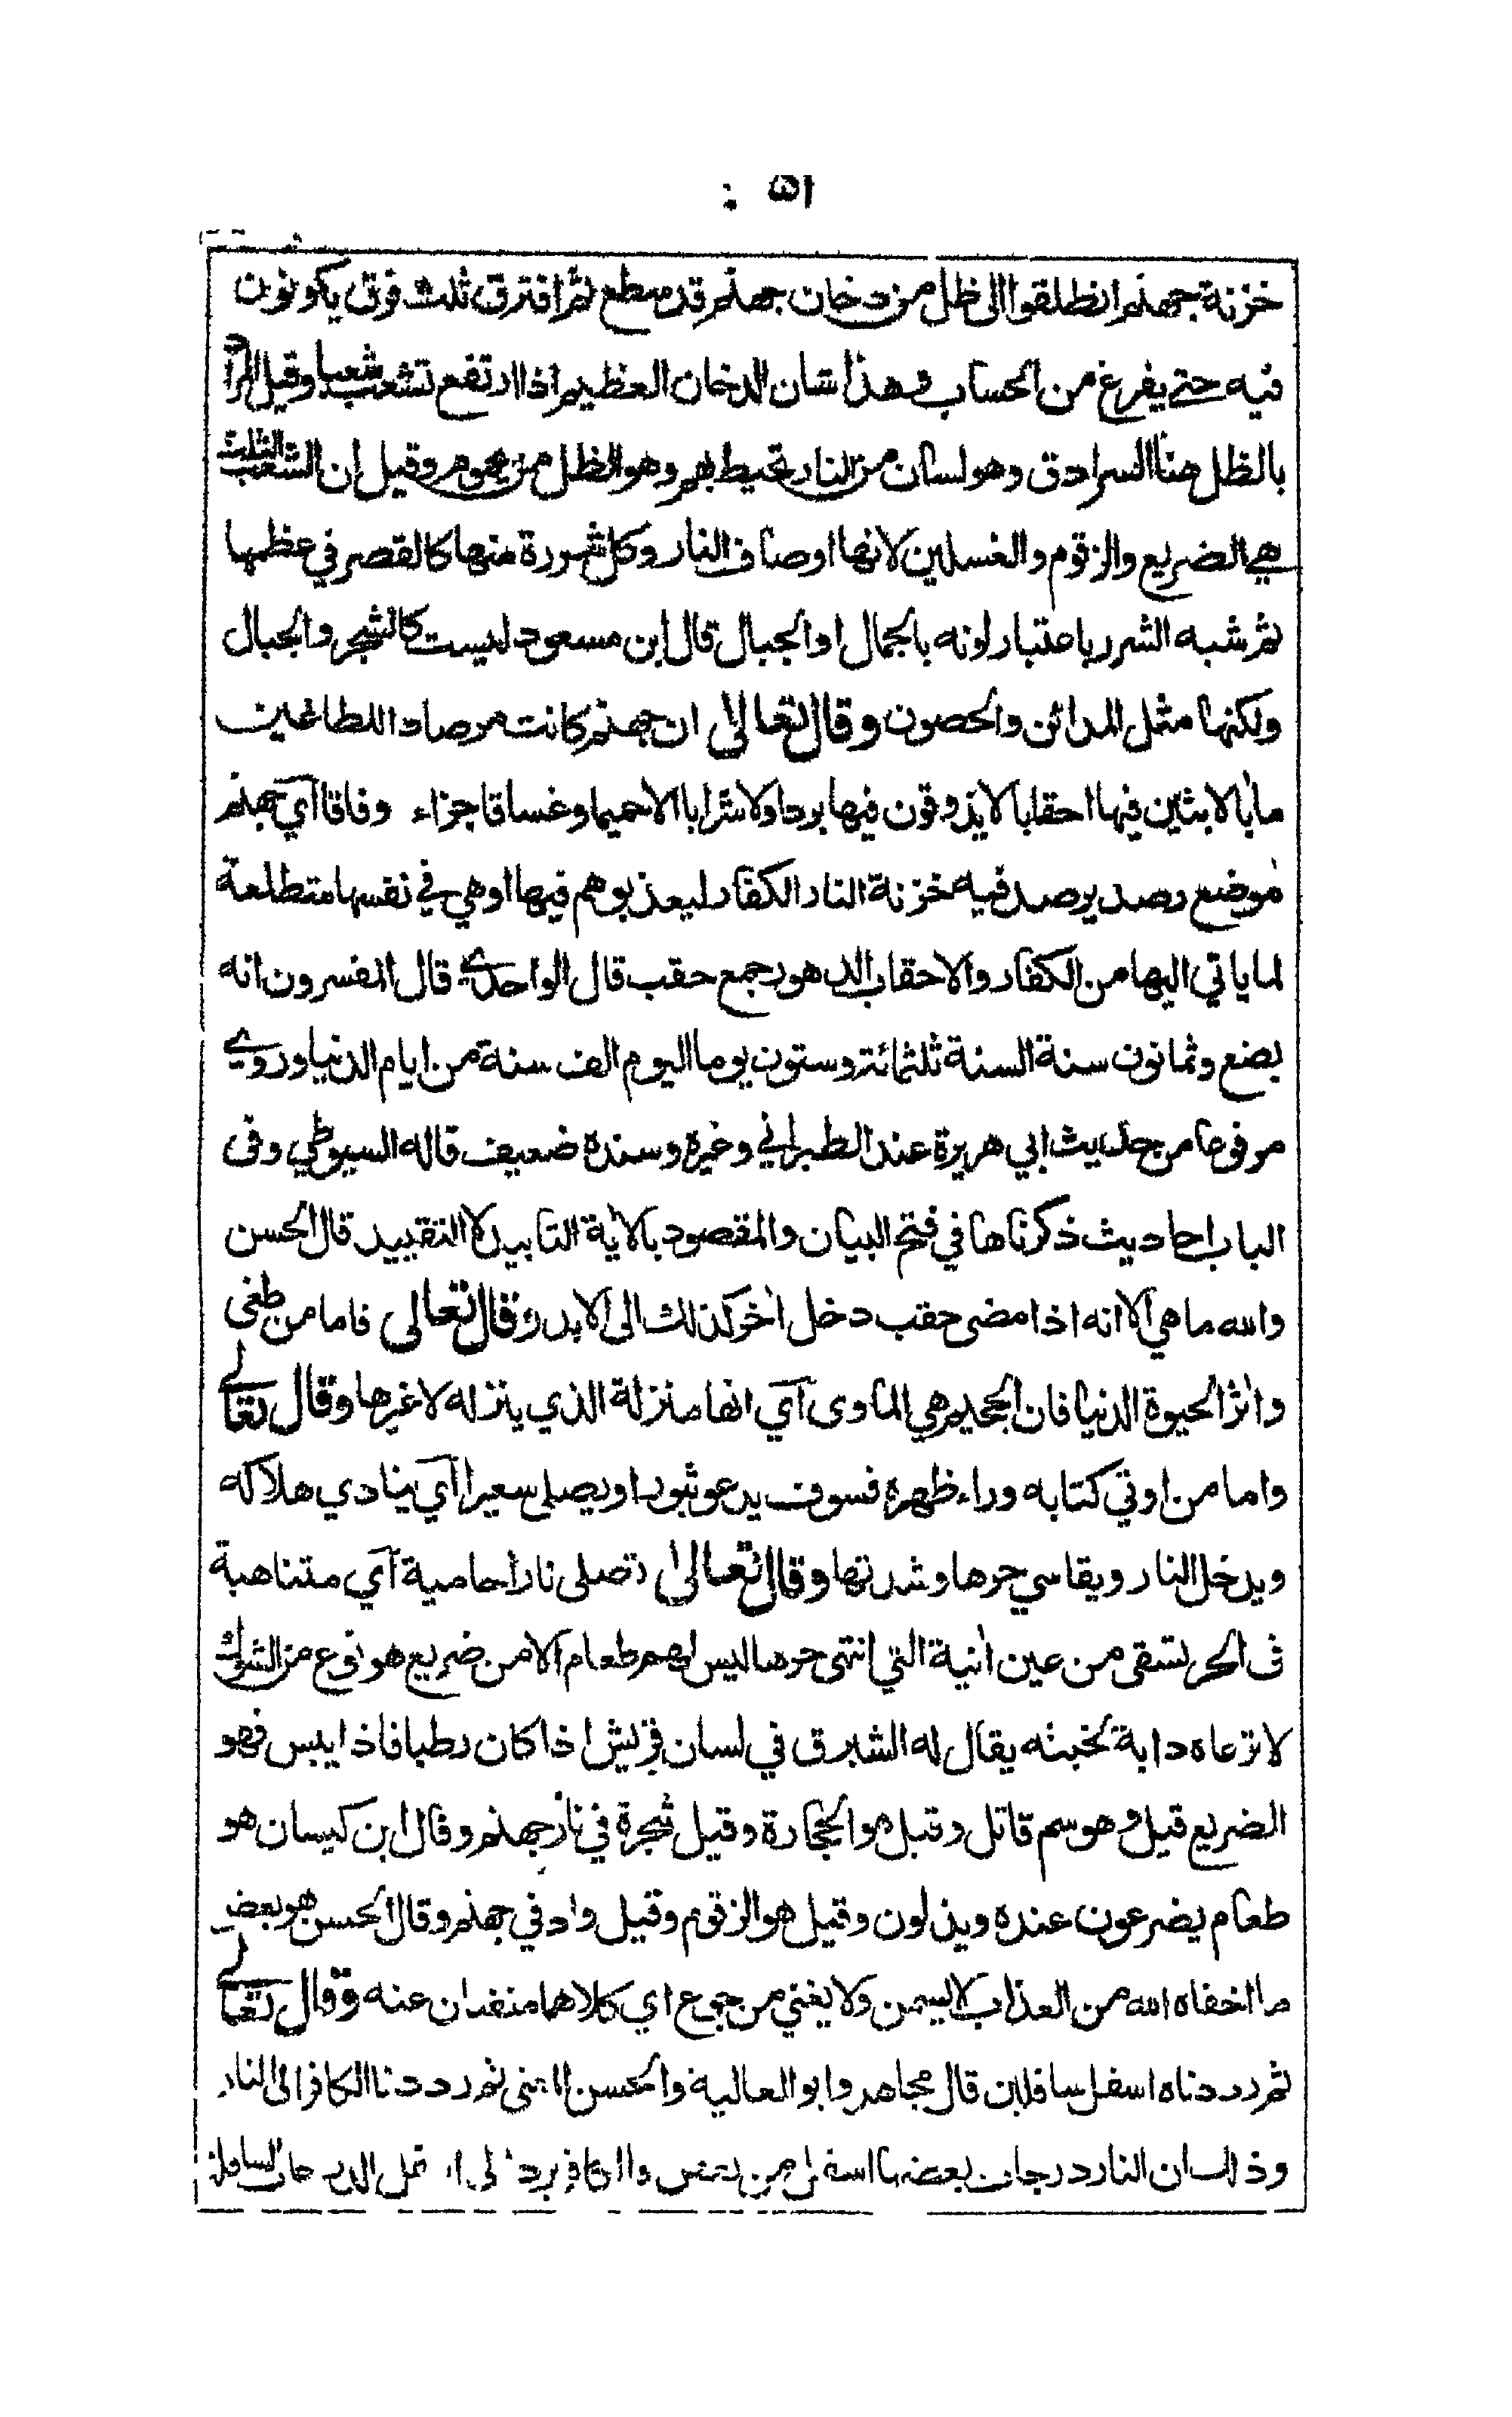 ٥١
خزنة جهنم انطلقوا الى ظل من دخان جهنم قد سطع ثم افترق ثلث فرق يكونون
فيه حتى يفرغ من الحساب وهذا شان الدخان العظيم اذا ارتفع تشعب شعبا وقيل المراد
بالظل هنا السرادق وهو لسان من النار تحيط بهم وهو الظل من يحموم وقيل ان الشعب الثلث
هي الضريع والزقوم والغسلين لانها اوصاف النار وكل شررة منها كالقصر في عظمها
ثم شبه الشرر باعتبار لونه بالجمال او الجبال قال ابن مسعود ليست كالشجر والجبال
ولكنها مثل المدائن والحصون وقال تعالى ان جهنم كانت مرصادا للطاغين
مابا لابثين فيها احقابا لا يذوقون فيها بردا ولا شرابا الا حميما وغساقا جزاء وفاقا آي جهنم
موضع رصد يرصد فيه خزنة النار الكفار ليعذبوهم فيها او هي في نفسها متطلعة
لما ياتي اليها من الكفار والاحقاب الدهور جمع حقب قال الواحدي قال المفسرون انه
بضع وثمانون سنة السنة ثلثمائة وستون يوما اليوم الف سنة من ايام الدنيا وروي
مرفوعا من حديث ابي هريرة عند الطبراني وغيره وسنده ضعيف قاله السيوطي وفى
الباب احاديث ذكرناها في فتح البيان والمقصود بالاية التابيد لا التقييد قال الحسن
والله ما هي الا انه اذا مضى حقب دخل اخر كذلك الى الابد وقال تعالى فاما من طغى
واثر الحيوة الدنيا فان الجحيم هي الماوى آي انها منزلة الذي ينزله لا غيرها وقال تعالى
واما من اوتي كتابه وراء ظهره فسوف يدعو ثبورا ويصلى سعيرا آي ينادي هلاكه
ويدخل النار ويقاسي حرها وشدتها وقال تعالى تصلى نارا حامية آي متناهية
فى الحر تسقى من عين انية التي انتهى حرها ليس لهم طعام الا من ضريع هو نوع من الشوك
لا ترعاه دابة لخبثه يقال له الشبرق في لسان قريش اذا كان رطبا فاذا يبس فهو
الضريع قيل وهو سم قاتل وقيل هو الحجارة وقيل شجرة في نار جهنم وقال ابن كيسان هو
طعام يضرعون عنده ويذلون وقيل هو الزقوم وقيل واد في جهنم وقال الحسن هو بعض
ما اخفاه الله من العذاب لا يسمن ولا يغني من جوع اي كلاهما منفدان عنه وقال تعالى
ثم رددناه اسفل سافلين قال مجاهد وابو العالية والحسن المعنى ثم رددنا الكافر الى النار
وذلك ان النار درجات بعضها اسفل من بعض والكافر يرد الى اسفل الدرجات السافلة